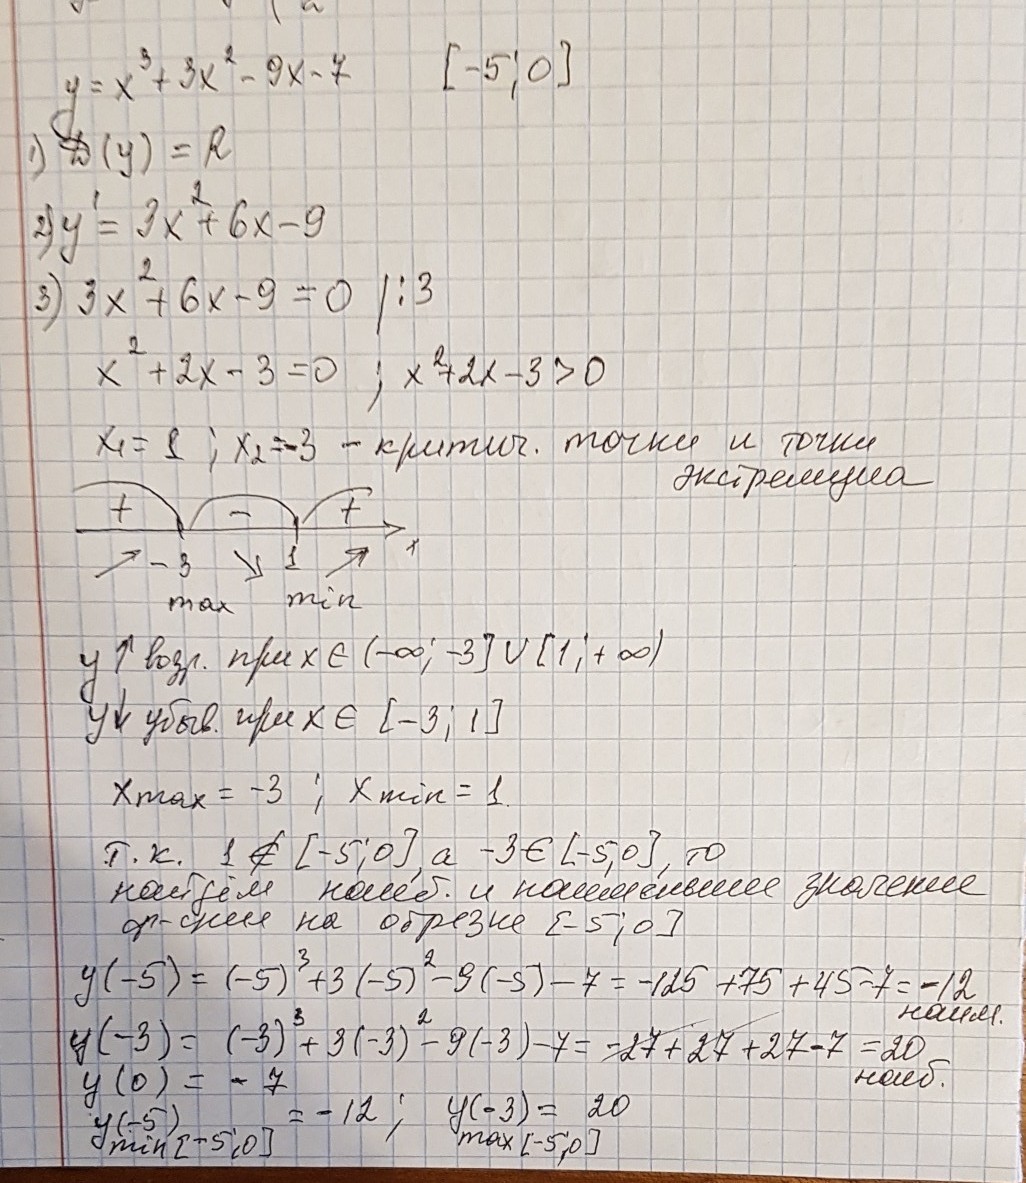 y = x³ + 3x² - 9x - 7 [-5; 0]
1) D(y) = R
2) y' = 3x² + 6x - 9
3) 3x² + 6x - 9 = 0 / : 3
x² + 2x - 3 = 0 ; x² + 2x - 3 > 0
x₁ = 1 ; x₂ = -3 - критич. точки и точки
экстремума
+ - +
-3 1 x
max min
y ↑ возр. при x ∈ (-∞; -3] ∪ [1; +∞)
y ↓ убыв. при x ∈ [-3; 1]
xmax = -3 ; xmin = 1.
т.к. 1 ∉ [-5; 0], а -3 ∈ [-5; 0], то
найдём наиб. и наименьшее значение
ф-ции на отрезке [-5; 0]
y(-5) = (-5)³ + 3(-5)² - 9(-5) - 7 = -125 + 75 + 45 - 7 = -12
наим.
y(-3) = (-3)³ + 3(-3)² - 9(-3) - 7 = -27 + 27 + 27 - 7 = 20
наиб.
y(0) = -7
y(-5) = -12 ; y(-3) = 20
min [-5; 0] max [-5; 0]